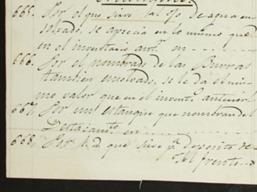 665. Por el que sirve
enlosado, se aprecia en lo mismo que
en el inventario antr. en
666. Por el nombrado de las Burras
tambien enlosado, se le da el mis
mo valor que en el invent.o anterior
667. Por un estanque que nombran del
en
668. Por h.a que sirve p.a deposito de
el frente